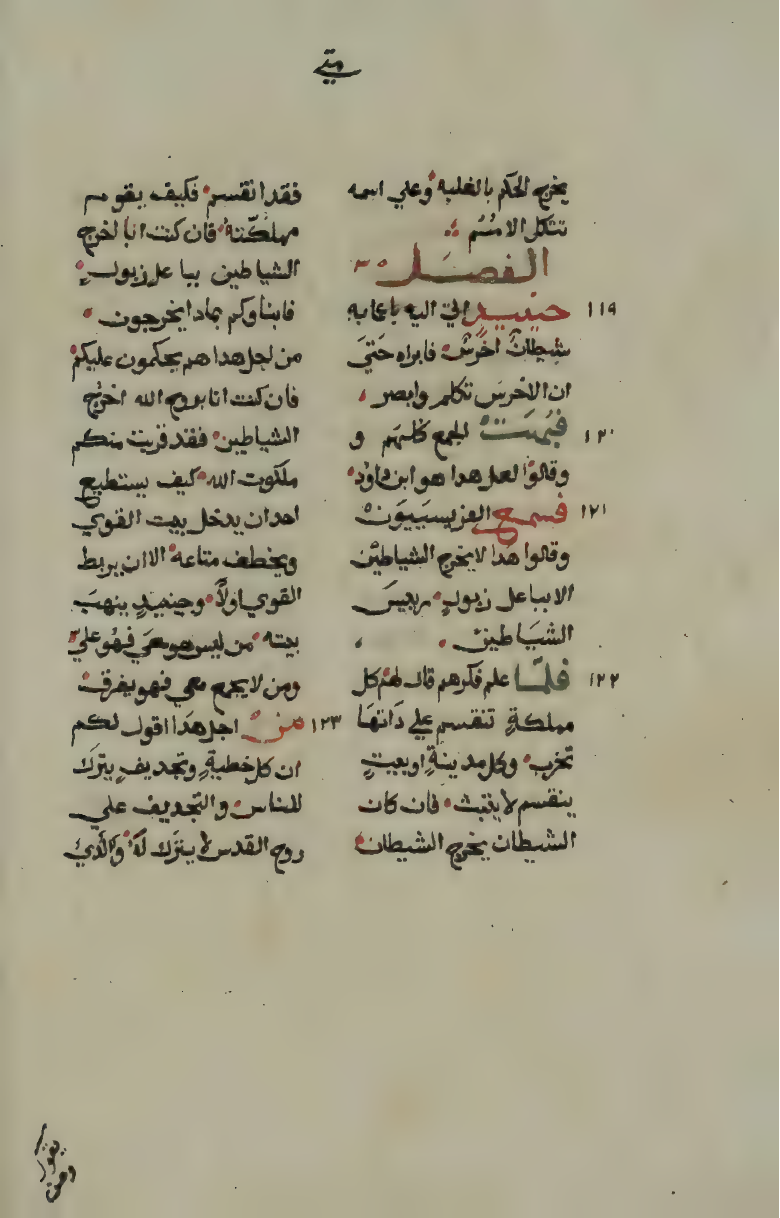 متي
يخرج الحكم بالغلبه وعلي اسمه
تتكل الامم
الفصل ٣٥
١١٩ حينيد اتي اليه باعما به
شيطان اخرس فابراه حتي
ان الاخرس تكلم وابصر
١٢٠ فبهت الجمع كلهم و
وقالوا لعل هدا هو ابن داود
١٢١ فسمع الفريسييون
وقالوا هدا لا يخرج الشياطين
الا بباعل زبول ريس
الشياطين
١٢٢ فلما علم فكرهم قال لهم كل
مملكة تنقسم علي داتها
تخرب وكل مدينة او بيت
ينقسم لا يثبت فان كان
الشيطان يخرج الشيطان
فقد انقسم فكيف يقوم
مملكته فان كنت انا اخرج
الشياطين بباعل زبول
فابناوكم بمادا يخرجون
من اجل هدا هم يحكمون عليكم
فان كنت انا بروح الله اخرج
الشياطين فقد قربت منكم
ملكوت الله كيف يستطيع
احد ان يدخل بيت القوي
ويخطف متاعه الا ان يربط
القوي اولا وحينيد ينهب
بيته من ليس هو معي فهو علي
ومن لا يجمع معي فهو يفرق
١٢٣ من اجل هدا اقول لكم
ان كل خطية وتجديف يترك
للناس والتجديف علي
روح القدس لا يترك له والدي
يقول
ومن